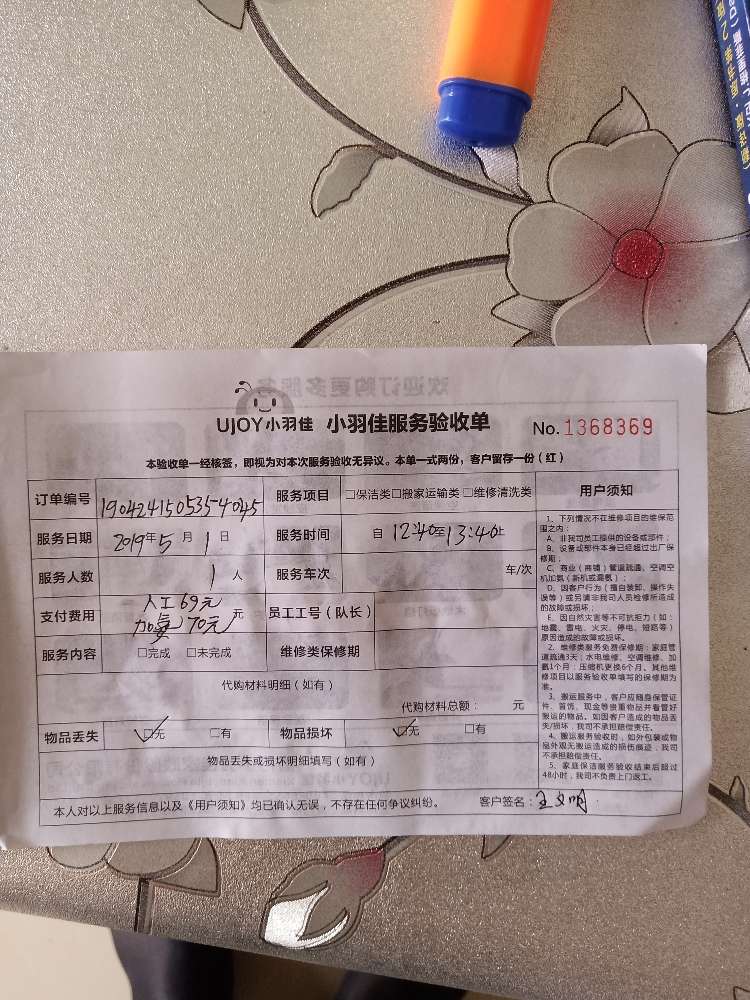 UJOY小羽佳 小羽佳服务验收单 No.1368369
本验收单一经核签，即视为对本次服务验收无异议。本单一式两份，客户留存一份（红）
订单编号 190424150535-4045 服务项目 □保洁类□搬家运输类□维修清洗类
服务日期 2019年5月1日 服务时间 自12:40至13:40止
服务人数 1人 服务车次 车/次
支付费用 人工69元 元 员工工号（队长）
加氟70元
服务内容 □完成 □未完成 维修类保修期
代购材料明细（如有）
代购材料总额： 元
物品丢失 □无 □有 物品损坏 □无 □有
物品丢失或损坏明细填写（如有）
本人对以上服务信息以及《用户须知》均已确认无误，不存在任何争议纠纷。 客户签名：王文明
用户须知
1、下列情况不在维修项目的维保范
围之内：
A、非我司员工提供的设备或部件；
B、设备或部件本身已经超过出厂保
修期；
C、商业（商铺）管道疏通、空调空
机加氟（新机或漏氟）；
D、因客户行为（擅自装卸、操作失
误等）或另请非我司人员检修所造成
的故障或损坏；
E、因自然灾害等不可抗拒力（如：
地震、雷电、火灾、停电、短路等）
原因造成的故障或损坏。
2、维修类服务免费保修期：家庭管
道疏通3天；水电维修、空调维修、加
氟1个月；压缩机更换6个月。其他维
修项目以服务验收单填写的保修期为
准。
3、搬运服务中，客户应随身保管证
件、首饰、现金等贵重物品并看管好
搬运的物品。如因客户造成的物品丢
失/损坏，我司不承担赔偿责任。
4、搬运服务验收时，如外包装或物
品外观无搬运造成的损伤痕迹，我司
不承担赔偿责任。
5、家庭保洁服务验收结束后超过
48小时，我司不负责上门返工。